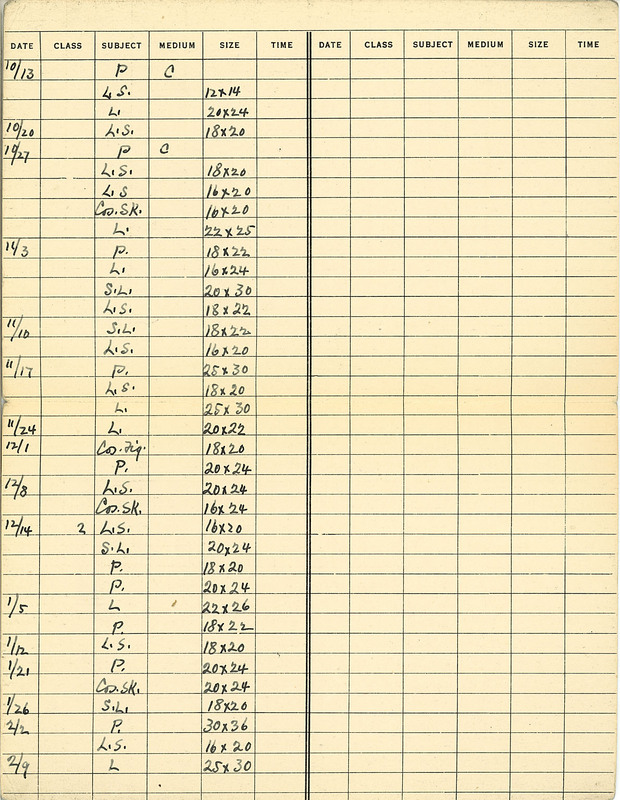 DATE CLASS SUBJECT MEDIUM SIZE TIME DATE CLASS SUBJECT MEDIUM SIZE TIME
10/13 P C
L.S. 12x14
L. 20x24
10/20 L.S. 18x20
10/27 P C
L.S. 18x20
L.S 16x20
Cos.Sk. 16x20
L. 22x25
11/3 P. 18x22
L. 16x24
S.L. 20x30
L.S. 18x22
11/10 S.L. 18x22
L.S. 16x20
11/17 P. 25x30
L.S. 18x20
L. 25x30
11/24 L. 20x22
12/1 Cos.Fig. 18x20
P. 20x24
12/8 L.S. 20x24
Cos.Sk. 16x24
12/14 2 L.S. 16x20
S.L. 20x24
P. 18x20
P. 20x24
1/5 L 22x26
P. 18x22
1/12 L.S. 18x20
1/21 P. 20x24
Cos.Sk. 20x24
1/26 S.L. 18x20
2/2 P. 30x36
L.S. 16x20
2/9 L 25x30